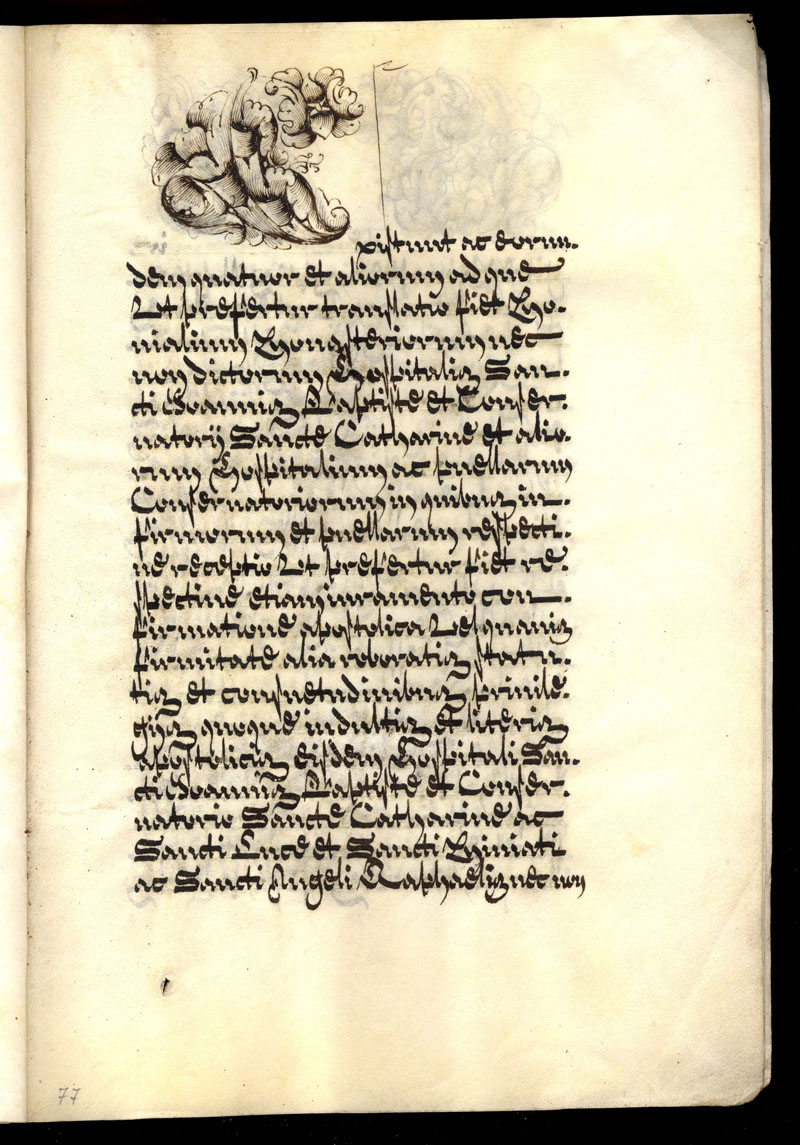 Existunt ac eorun-
dem quatuor et aliorum ad que
Ut prefertur translatio fiet Mo-
nialium Monasteriorum nec
non dictorum Hospitalis San-
cti Ioannis Baptiste et Conser-
uatorij Sancte Catharine et alio-
rum Hospitalium ac puellarum
Conseruatoriorum in quibus in-
firmorum et puellarum respecti-
ue receptio Ut prefertur fiet re-
spectiue etiam iuramento con-
firmatione apostolica Vel quauis
firmitate alia roboratis statu-
tis et consuetudinibus priuile-
gijs quoque indultis et literis
apostolicis eisdem Hospitali San-
cti Ioannis Baptiste et Conser-
uatorio Sancte Catharine ac
Sancti Luce et Sancti Miniati
ac Sancti Angeli Raphaelis nec non
77